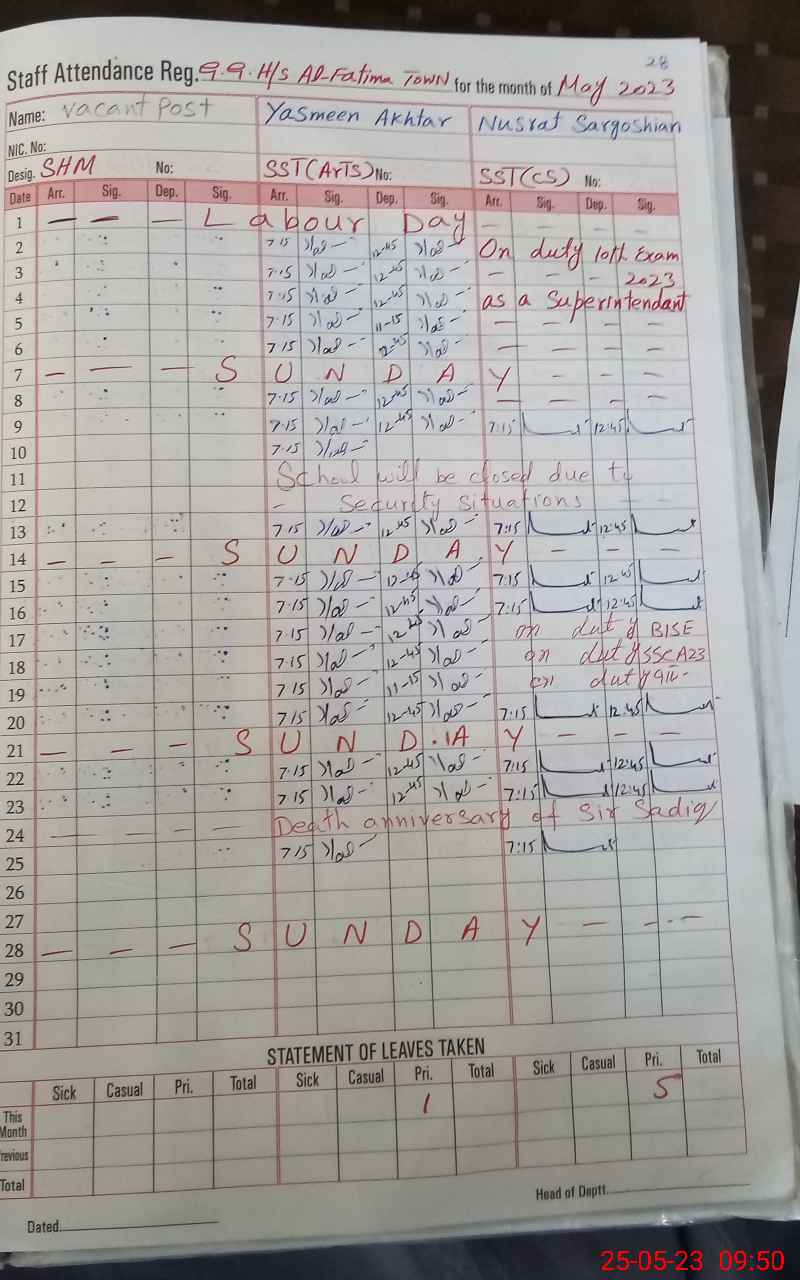 28
Staff Attendance Reg. G.G. H/S Al-Fatima Town for the month of May 2023
Name: Vacant Post Yasmeen Akhtar Nusrat Sargoshian
NIC. No:
Desig. SHM No: SST(Arts) No: SST(CS) No:
Date Arr. Sig. Dep. Sig. Arr. Sig. Dep. Sig. Arr. Sig. Dep. Sig.
1 — — — Labour Day — — — —
2 7.15 12-45 On duty 10th Exam
3 7.15 12-45 — — — 2023
4 7.15 12-45 as a Superintendant
5 7.15 11-15 — — — —
6 7.15 12-45 — — — —
7 — — — S U N D A Y — — —
8 7.15 12-45 — — — —
9 7.15 12-45 7:15 12:45
10 7.15
11 School will be closed due to
12 - Security situations — —
13 7.15 12-45 7:15 12:45
14 — — — S U N D A Y — — —
15 7.15 12-45 7:15 12:45
16 7.15 12-45 7:15 12:45
17 7.15 12-45 on duty BISE
18 7.15 12-45 on duty SSCA23
19 7.15 11-15 on duty 9th-
20 7.15 12-45 7:15 12:45
21 — — — S U N D A Y — — —
22 7.15 12-45 7:15 12:45
23 7.15 12-45 7:15 12:45
24 — — — — Death anniversary of Sir Sadiq
25 7.15 7:15
26
27
28 — — — S U N D A Y — — —
29
30
31
STATEMENT OF LEAVES TAKEN
Sick Casual Pri. Total Sick Casual Pri. Total Sick Casual Pri. Total
This Month 1 5
Previous
Total
Dated Head of Deptt.
25-05-23 09:50